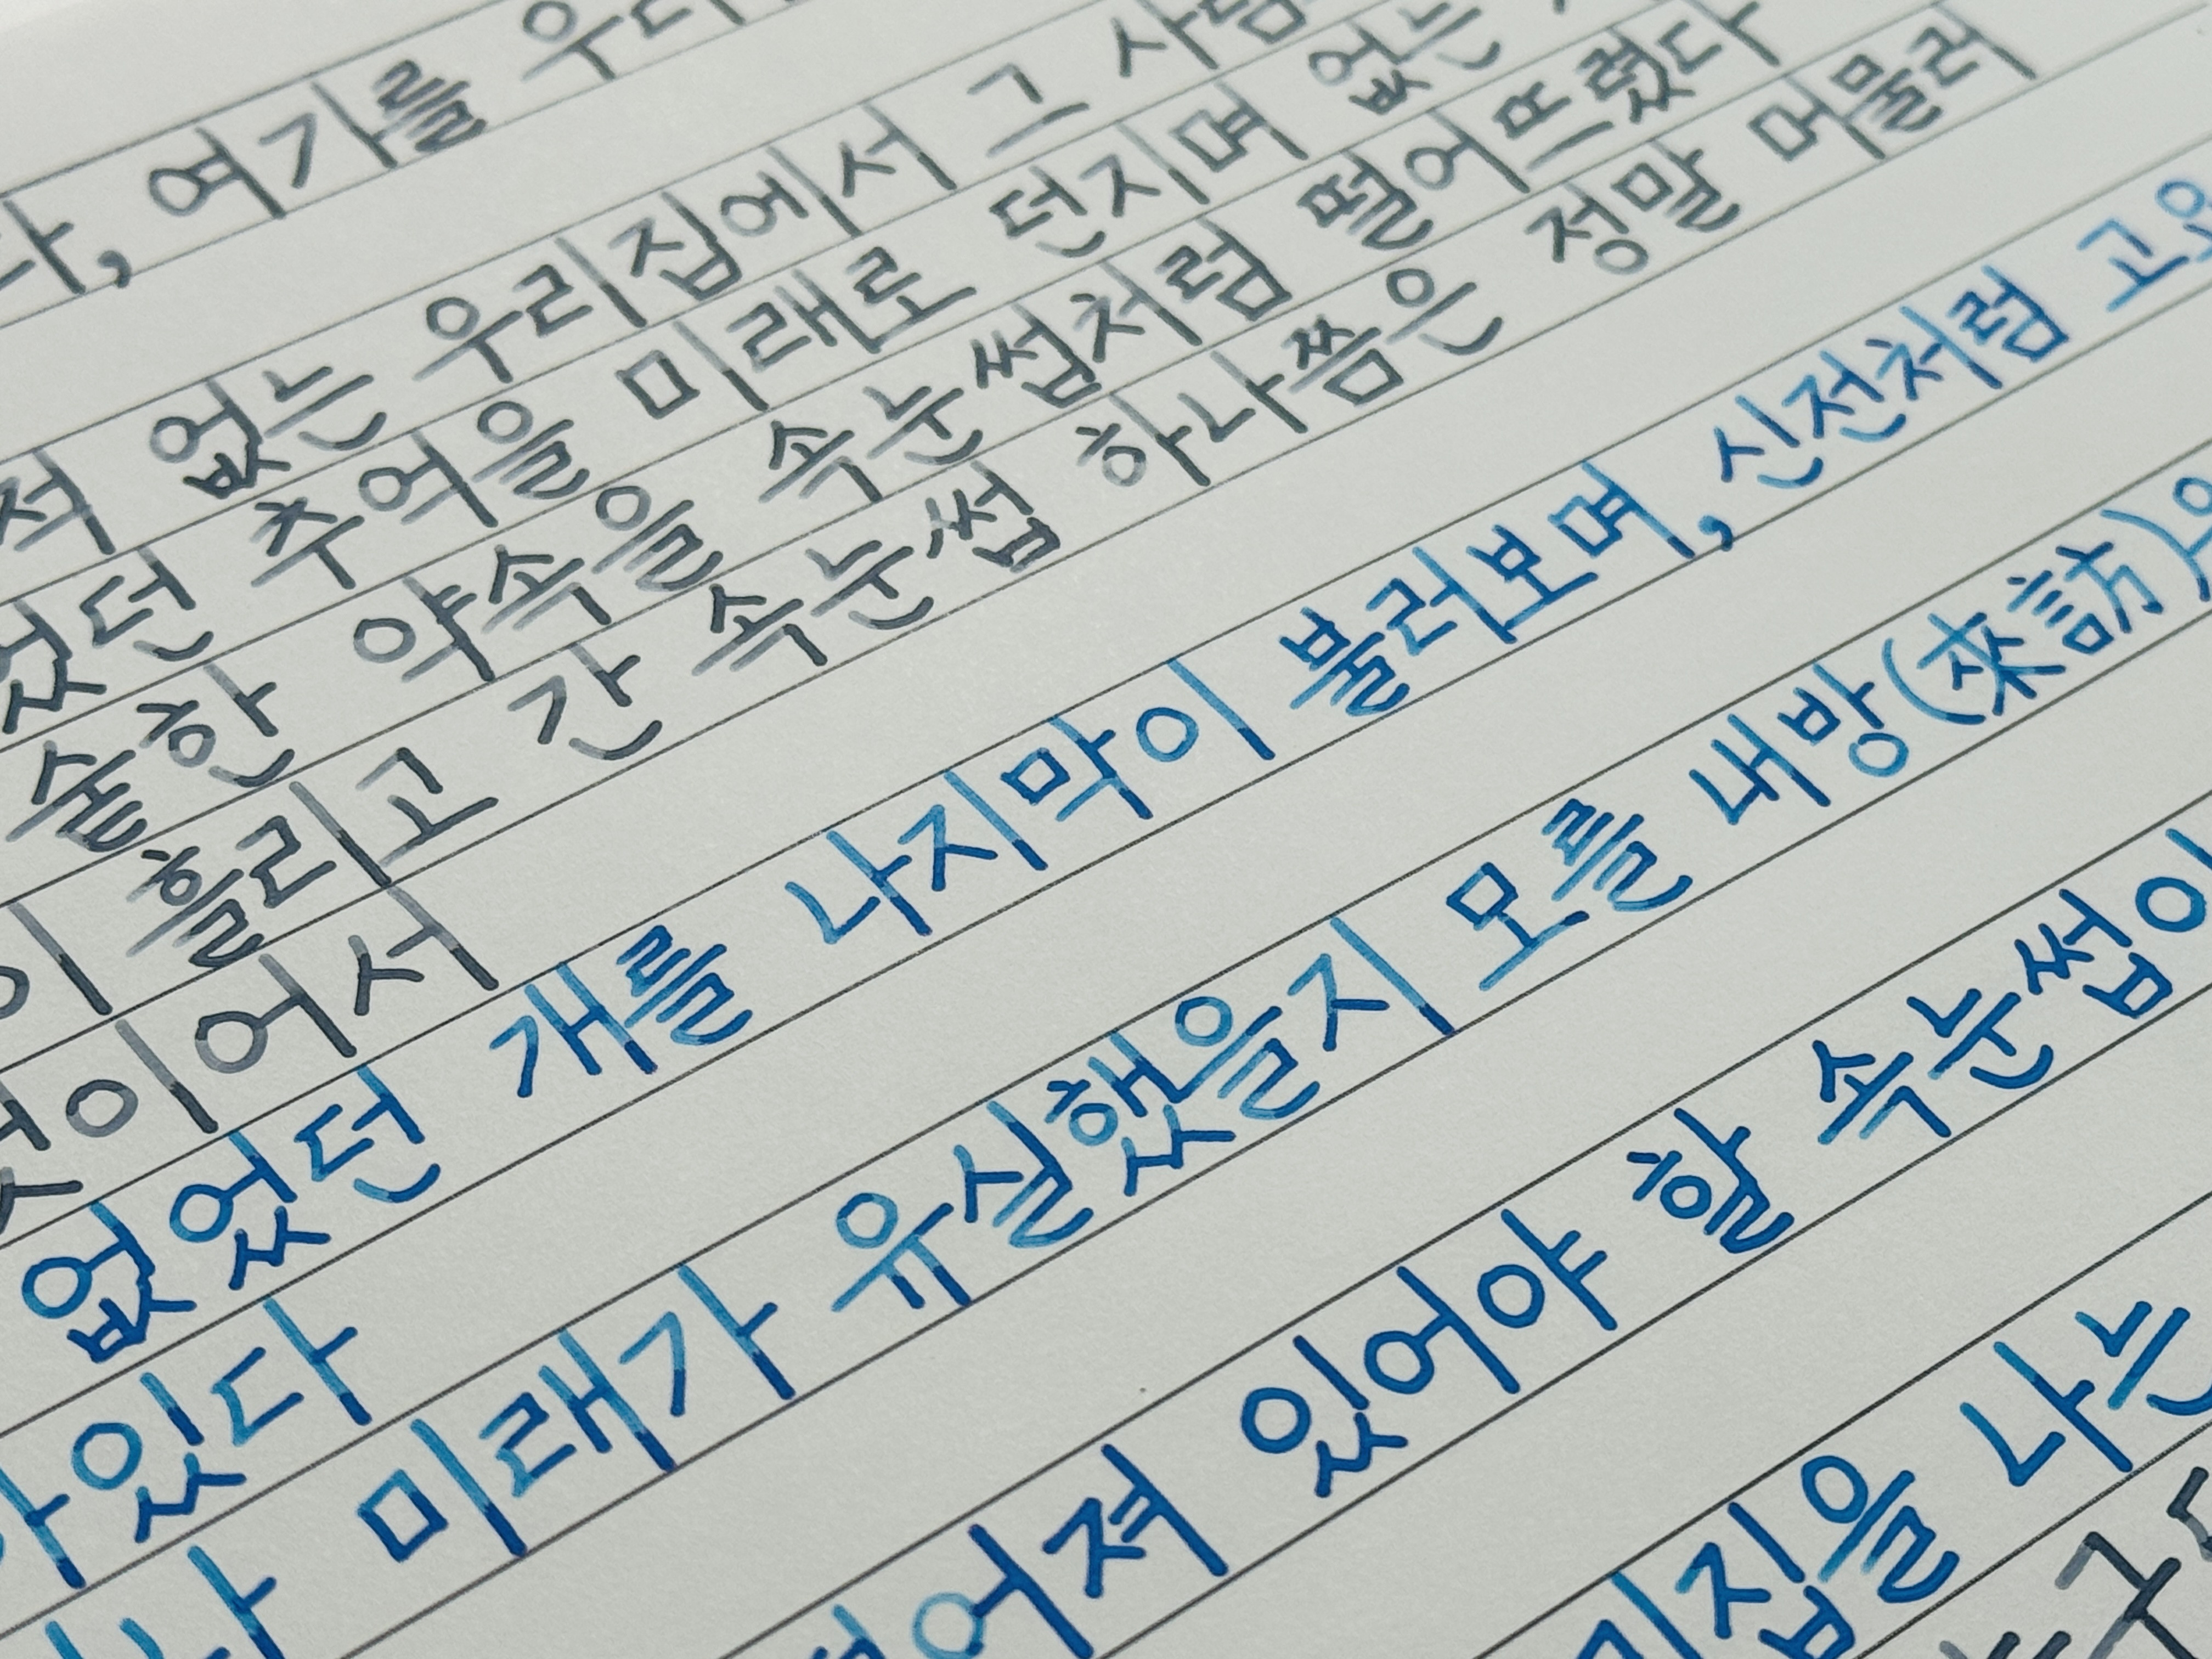 여기를
없는 우리 집에서 그
추억을 미래로 던지며 없는
숱한 약속을 속눈썹처럼 떨어뜨렸다
흘리고 간 속눈썹 하나쯤은 정말 머물러
이어서
없었던 개를 나지막이 불러보며, 신전처럼
있다
미래가 유실했을지 모를 내방(來訪)
있어야 할 속눈썹이
집을 나는